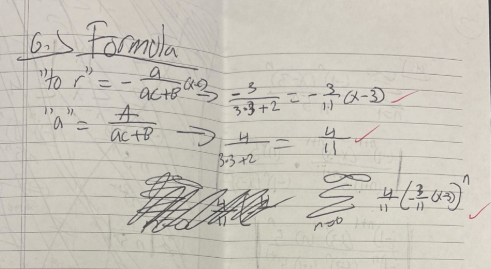 6.) Formula
"to r" = - a/(ac+B) (x-c) → -3/(3·3+2) = -3/11 (x-3) ✓
"a" = A/(ac+B) → 4/(3·3+2) = 4/11 ✓
∞ Σ n=0 4/11 (-3/11 (x-3))^n ✓